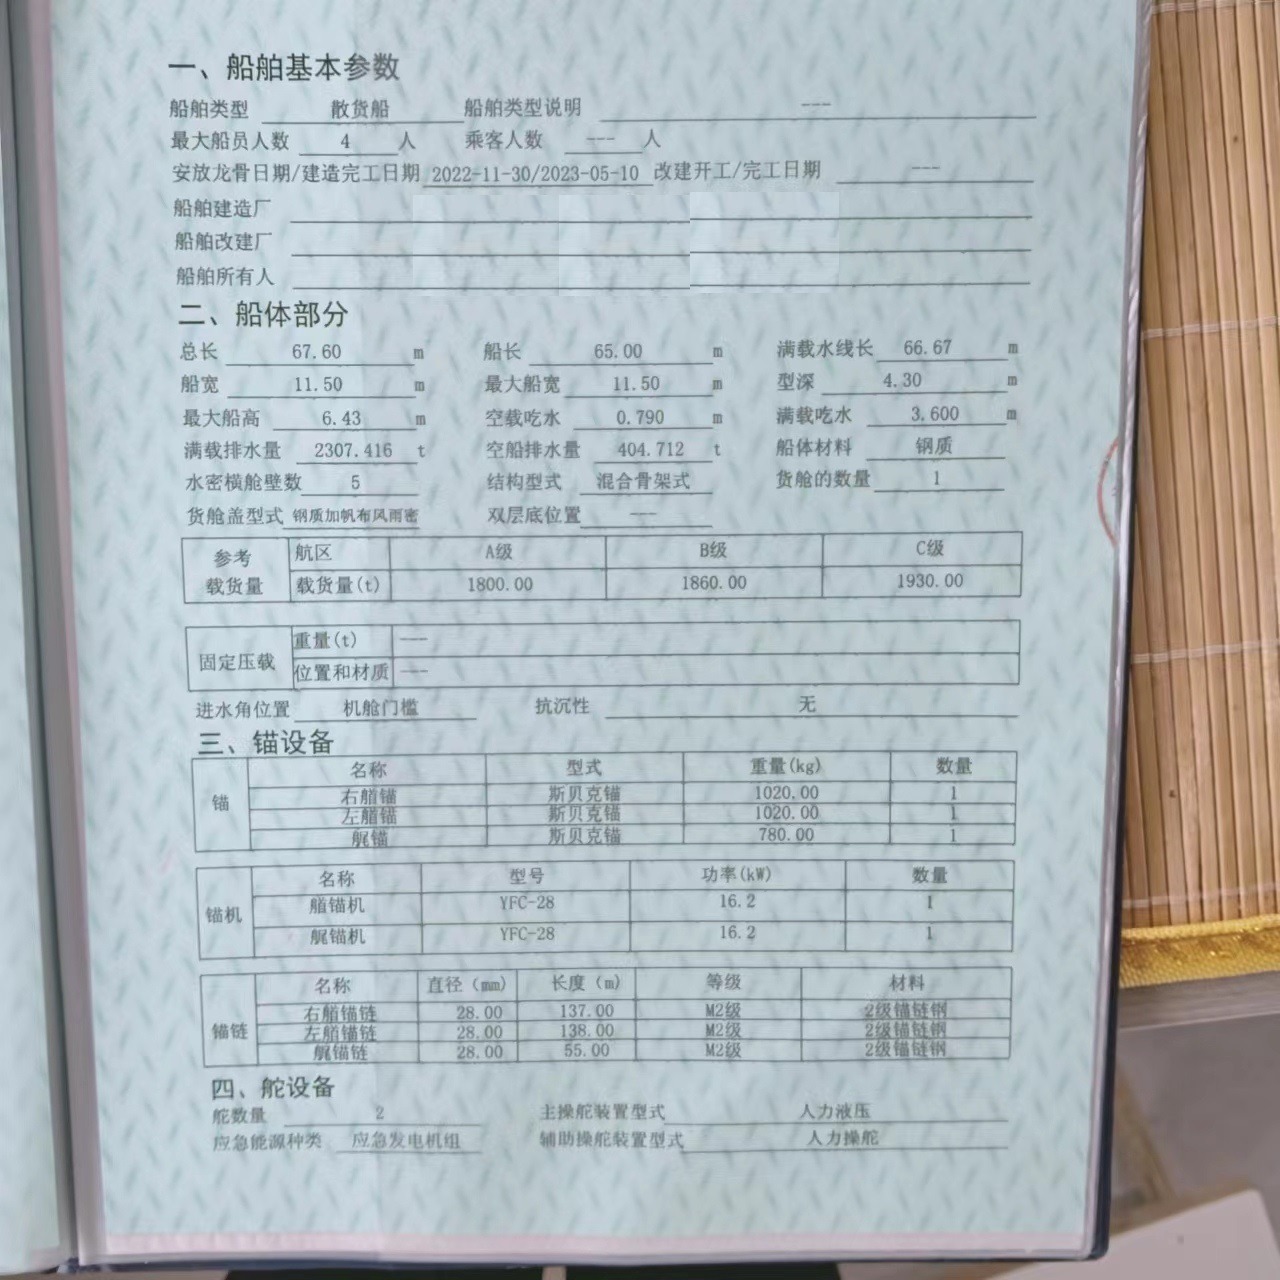 一、船舶基本参数
船舶类型 散货船 船舶类型说明 ---
最大船员人数 4 人 乘客人数 --- 人
安放龙骨日期/建造完工日期 2022-11-30/2023-05-10 改建开工/完工日期 ---
船舶建造厂
船舶改建厂
船舶所有人
二、船体部分
总长 67.60 m 船长 65.00 m 满载水线长 66.67 m
船宽 11.50 m 最大船宽 11.50 m 型深 4.30 m
最大船高 6.43 m 空载吃水 0.790 m 满载吃水 3.600 m
满载排水量 2307.416 t 空船排水量 404.712 t 船体材料 钢质
水密横舱壁数 5 结构型式 混合骨架式 货舱的数量 1
货舱盖型式 钢质加帆布风雨密 双层底位置 ---
参考载货量 航区 A级 B级 C级
载货量(t) 1800.00 1860.00 1930.00
固定压载 重量(t) ---
位置和材质 ---
进水角位置 机舱门槛 抗沉性 无
三、锚设备
锚 名称 型式 重量(kg) 数量
右艏锚 斯贝克锚 1020.00 1
左艏锚 斯贝克锚 1020.00 1
艉锚 斯贝克锚 780.00 1
锚机 名称 型号 功率(kW) 数量
艏锚机 YFC-28 16.2 1
艉锚机 YFC-28 16.2 1
锚链 名称 直径 (mm) 长度 (m) 等级 材料
右艏锚链 28.00 137.00 M2级 2级锚链钢
左艏锚链 28.00 138.00 M2级 2级锚链钢
艉锚链 28.00 55.00 M2级 2级锚链钢
四、舵设备
舵数量 2 主操舵装置型式 人力液压
应急能源种类 应急发电机组 辅助操舵装置型式 人力操舵